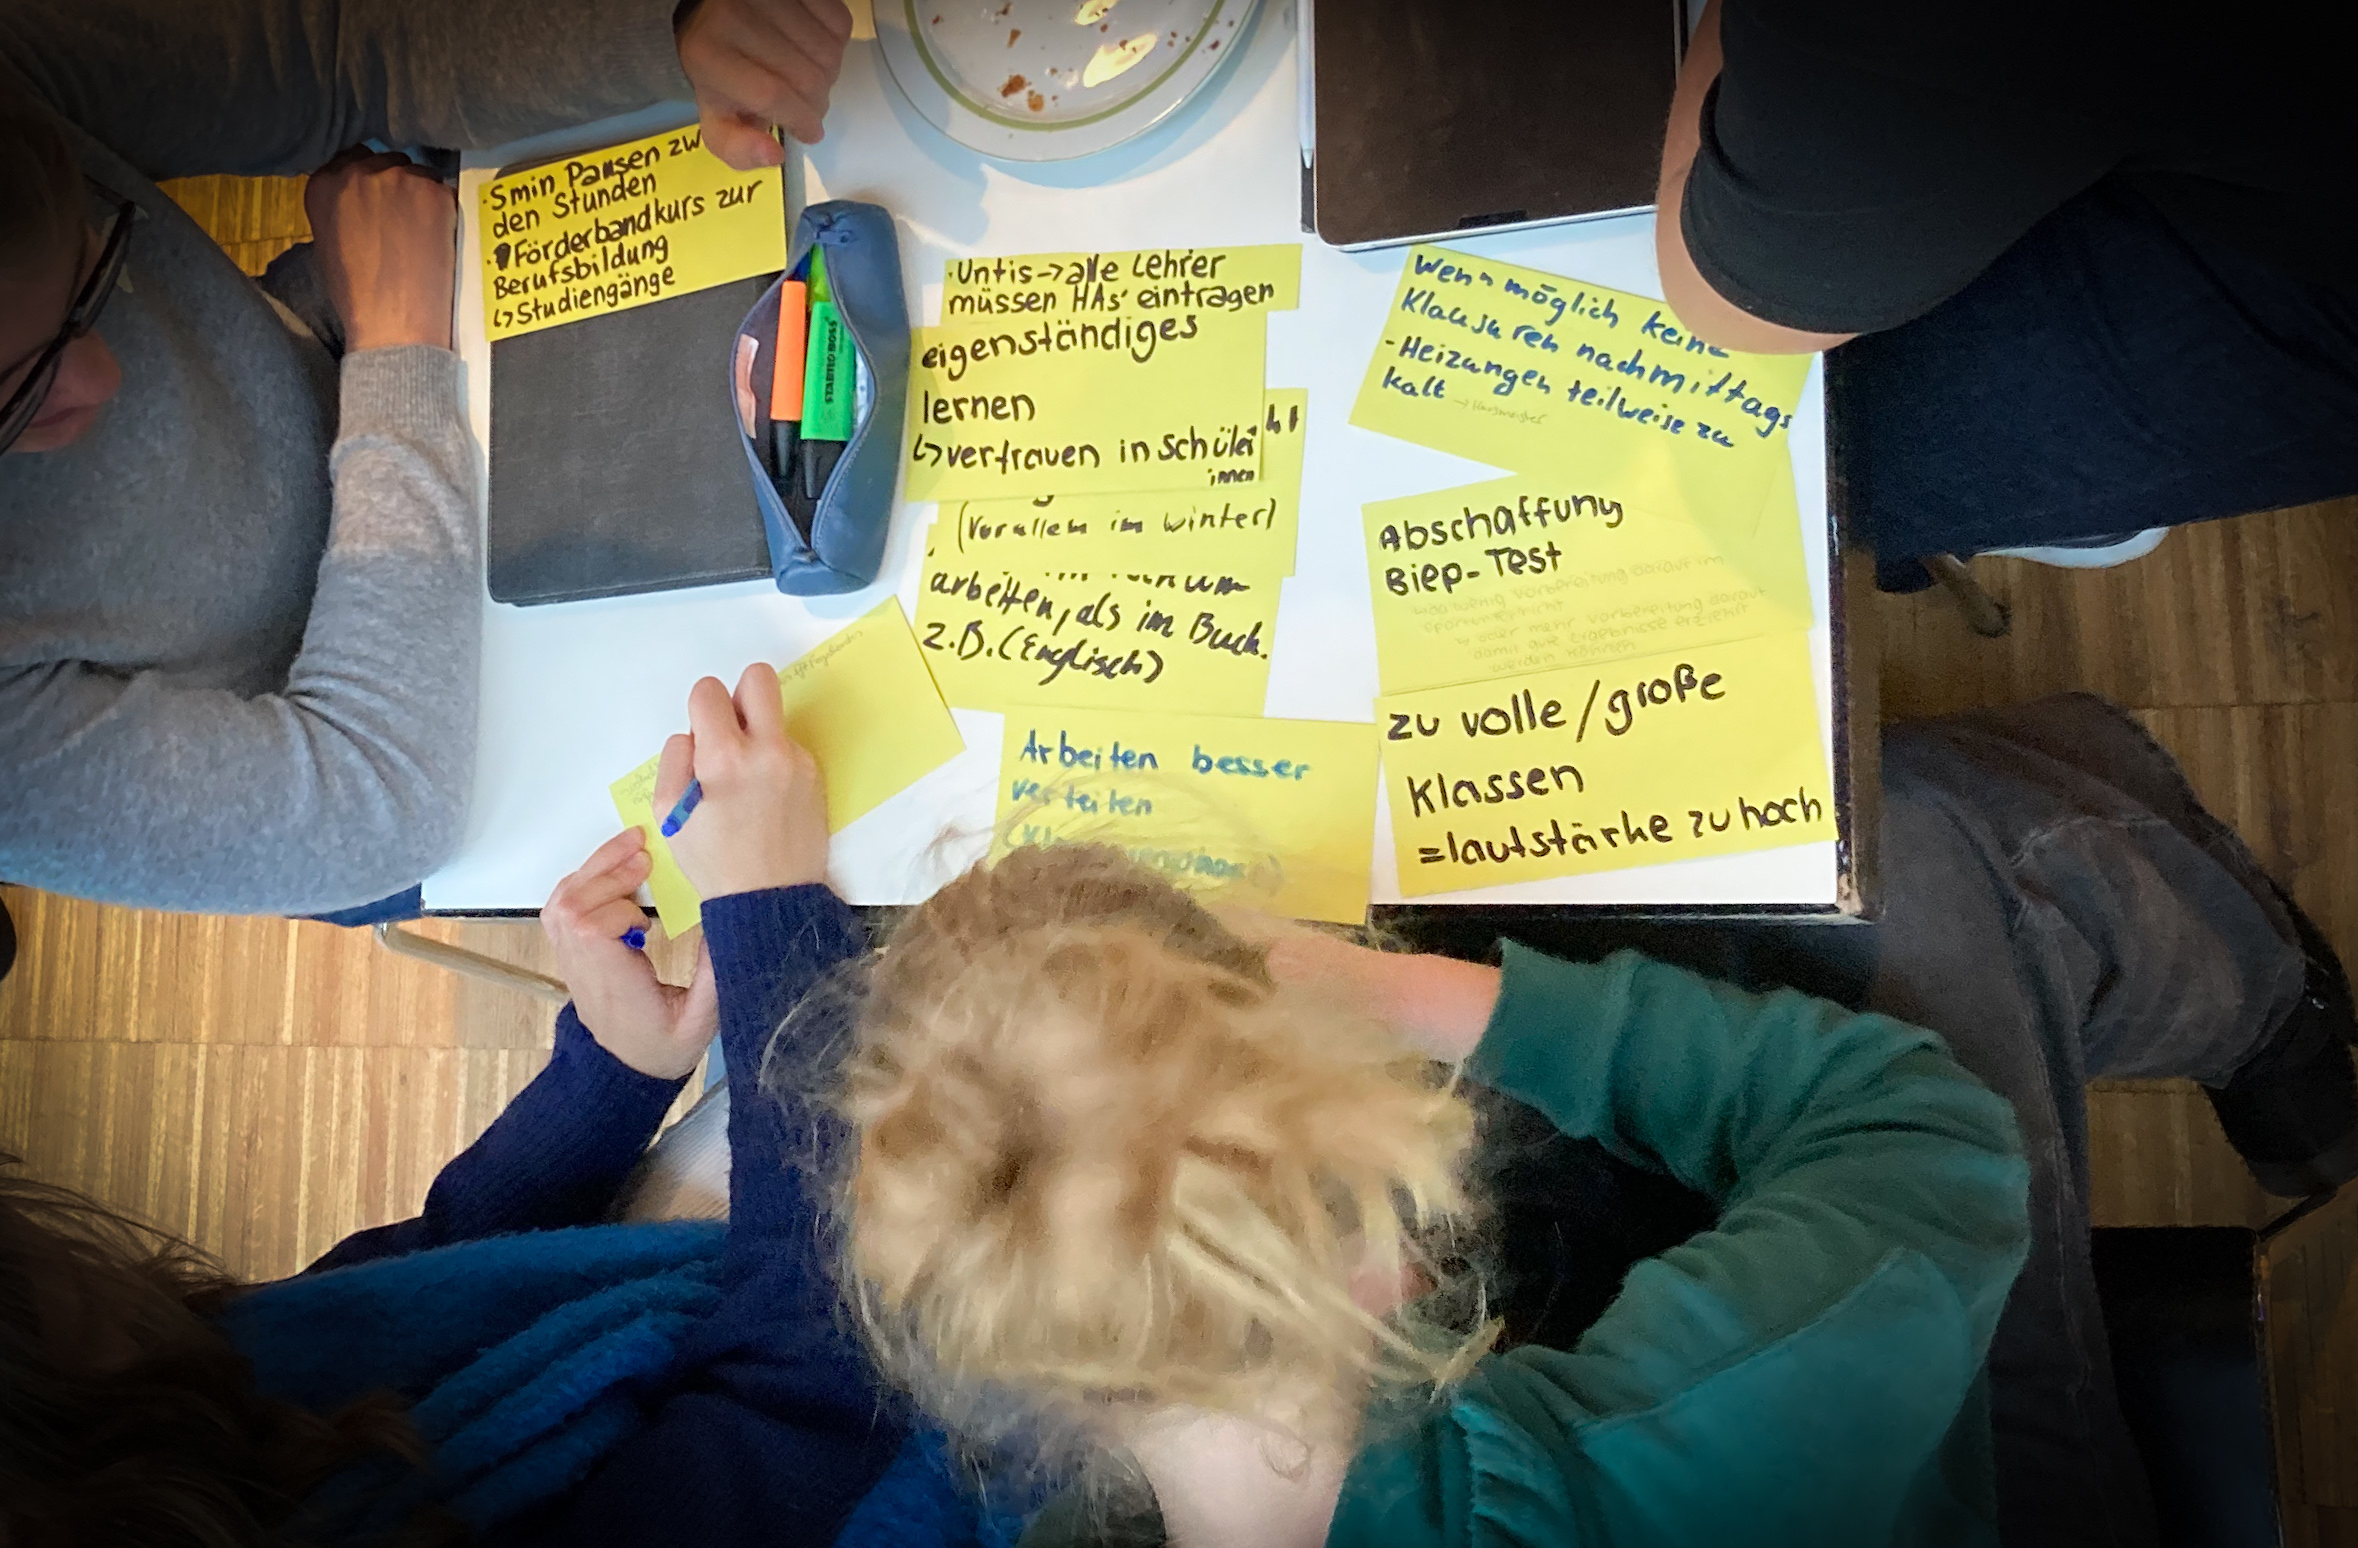 ·5min Pausen zw
den Stunden
·Förderbandkurs zur
Berufsbildung
↳Studiengänge
STABILO BOSS
·Untis->alle Lehrer
müssen HAs' eintragen
eigenständiges
lernen
↳vertrauen in schüler
innen
(vorallem im winter)
arbeiten, als im Buch.
z.B. (Englisch)
Arbeiten besser
verteilen
Wenn möglich keine
Klausuren nachmittags
-Heizungen teilweise zu
kalt
Abschaffung
Biep-Test
wenig vorbereitung darauf im
sportunterricht
↳ oder mehr vorbereitung darauf
damit gute Ergebnisse erziehlt
werden können
zu volle/große
Klassen
=lautstärke zu hoch